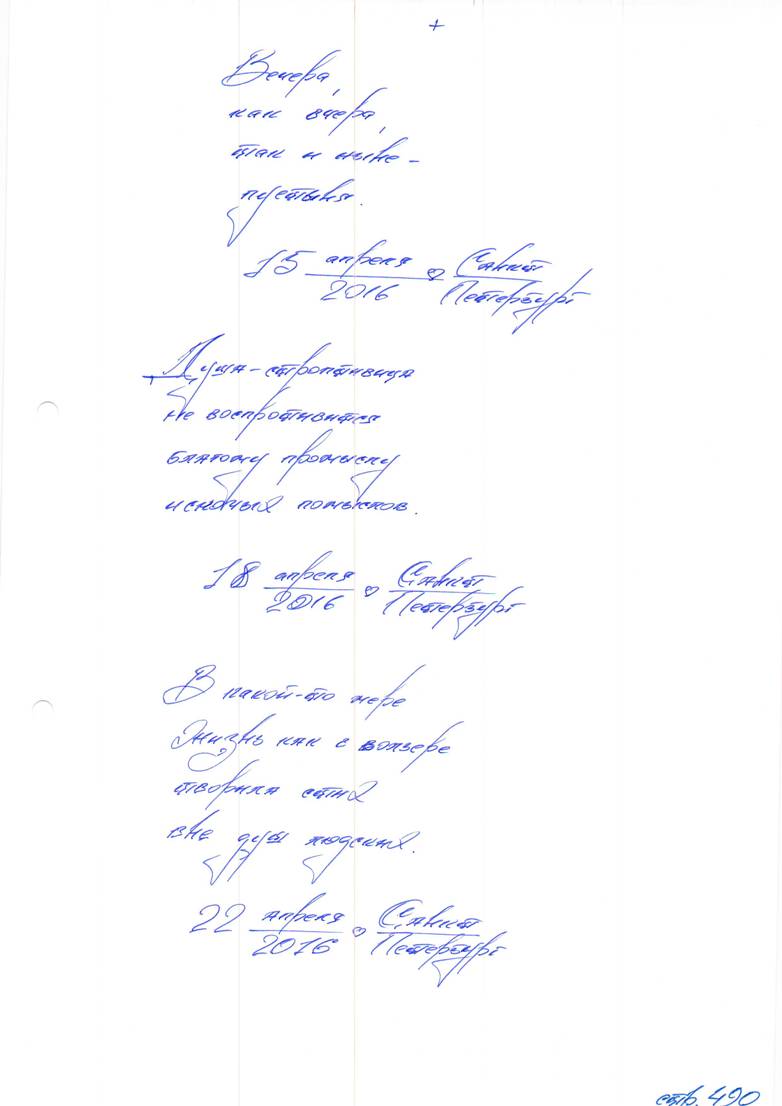 +
Вечера,
как вчера,
так и ныне -
пустыня.
15 апреля 2016 ♡ Санкт Петербург
Душа-строптивица
не воспротивится
благому промыслу
исконных помыслов.
18 апреля 2016 ♡ Санкт Петербург
В какой-то мере
Жизнь как в вольере
творила стих
вне душ людских.
22 апреля 2016 ♡ Санкт Петербург
стр. 490